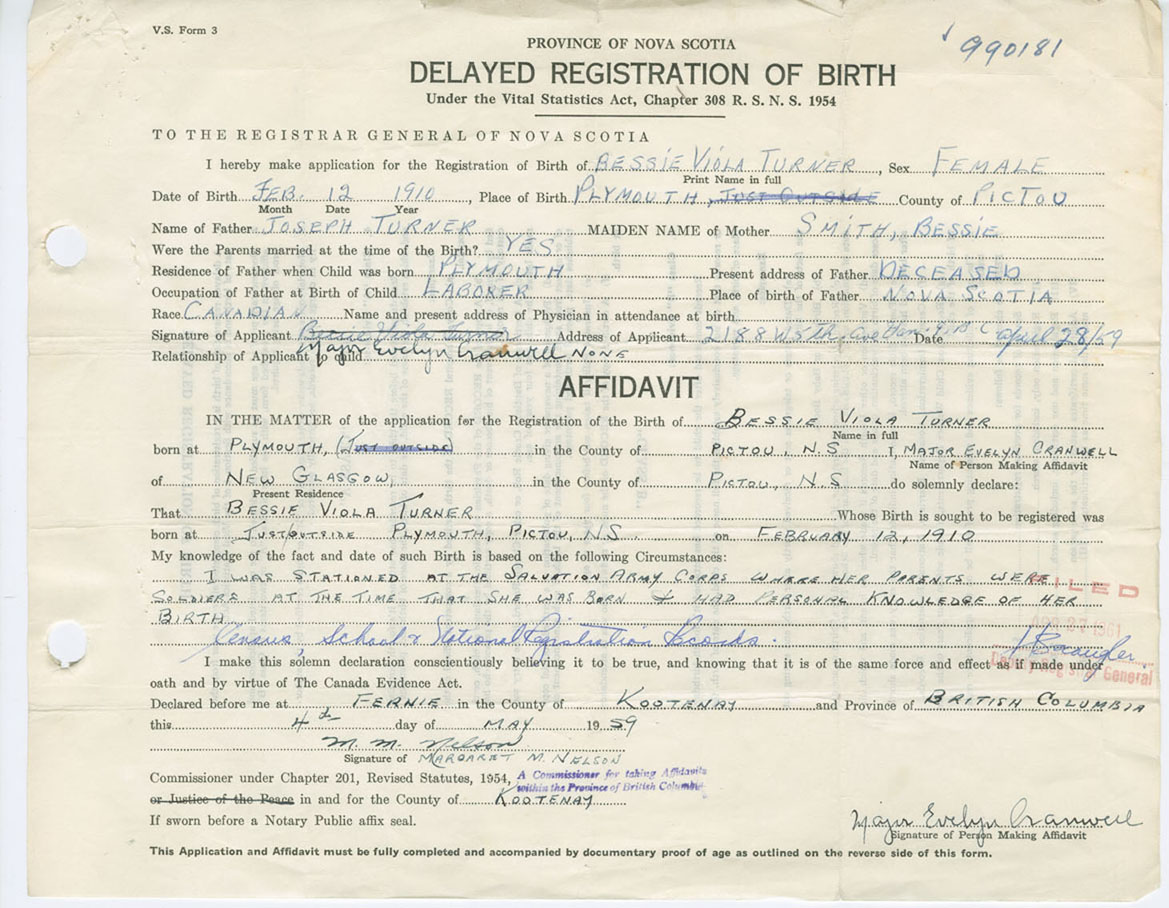 V.S. Form 3
990181
PROVINCE OF NOVA SCOTIA
DELAYED REGISTRATION OF BIRTH
Under the Vital Statistics Act, Chapter 308 R. S. N. S. 1954
TO THE REGISTRAR GENERAL OF NOVA SCOTIA
I hereby make application for the Registration of Birth of BESSIE VIOLA TURNER, Sex FEMALE
Print Name in full
Date of Birth FEB. 12 1910, Place of Birth PLYMOUTH, JUST OUTSIDE County of PICTOU
Month Date Year
Name of Father JOSEPH TURNER MAIDEN NAME of Mother SMITH, BESSIE
Were the Parents married at the time of the Birth? YES
Residence of Father when Child was born PLYMOUTH Present address of Father DECEASED
Occupation of Father at Birth of Child LABORER Place of birth of Father NOVA SCOTIA
Race CANADIAN Name and present address of Physician in attendance at birth
Signature of Applicant Bessie Viola Turner Address of Applicant 2188 W 5th, ave B C Date April 28/59
Relationship of Applicant to child Major Evelyn Cranwell NONE
AFFIDAVIT
IN THE MATTER of the application for the Registration of the Birth of BESSIE VIOLA TURNER
Name in full
born at PLYMOUTH, (JUST OUTSIDE) in the County of PICTOU, N.S I, MAJOR EVELYN CRANWELL
Name of Person Making Affidavit
of NEW GLASGOW, in the County of PICTOU, N.S do solemnly declare:
Present Residence
That BESSIE VIOLA TURNER Whose Birth is sought to be registered was
born at JUST OUTSIDE PLYMOUTH, PICTOU, N.S on FEBRUARY 12, 1910
My knowledge of the fact and date of such Birth is based on the following Circumstances:
I WAS STATIONED AT THE SALVATION ARMY CORPS WHERE HER PARENTS WERE
SOLDIERS AT THE TIME THAT SHE WAS BORN & HAD PERSONAL KNOWLEDGE OF HER
BIRTH
FILED
Census, School & National Registration Records.
27 1961
I make this solemn declaration conscientiously believing it to be true, and knowing that it is of the same force and effect as if made under
Deputy Registrar General
oath and by virtue of The Canada Evidence Act.
Declared before me at FERNIE in the County of KOOTENAY and Province of BRITISH COLUMBIA
this 4th day of MAY 1959
M. M. Nelson
Signature of MARGARET M. NELSON
Commissioner under Chapter 201, Revised Statutes, 1954, A Commissioner for taking Affidavits
within the Province of British Columbia
or Justice of the Peace in and for the County of KOOTENAY
If sworn before a Notary Public affix seal.
Major Evelyn Cranwell
Signature of Person Making Affidavit
This Application and Affidavit must be fully completed and accompanied by documentary proof of age as outlined on the reverse side of this form.